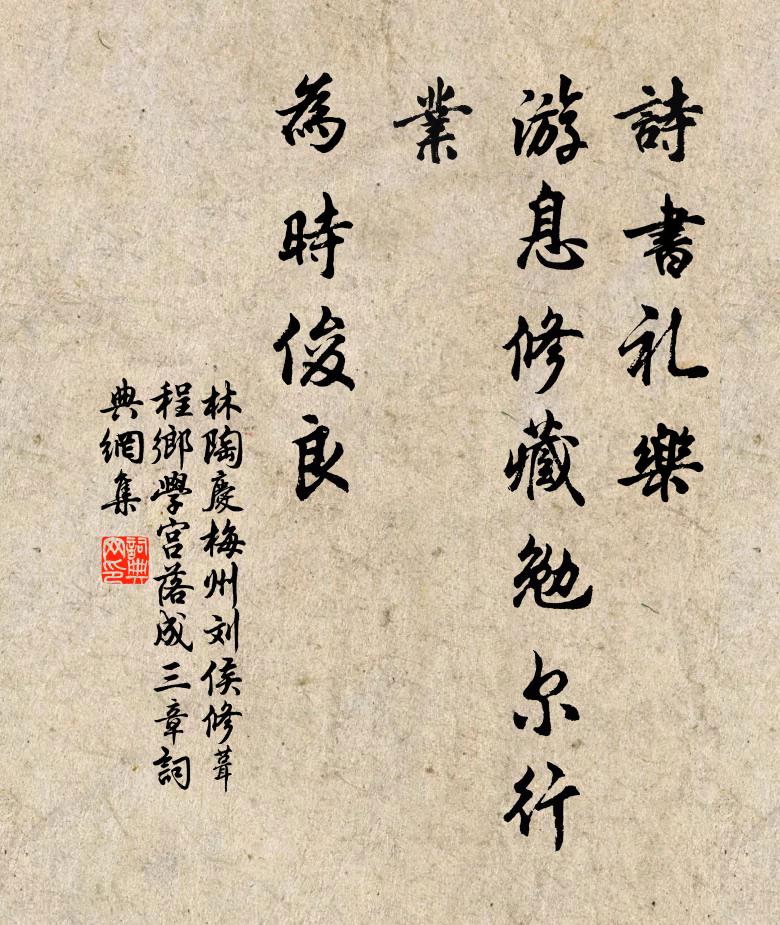 詩書礼樂
游息修藏勉尔行
業
為時俊良
林陶慶梅州刘侯修葺
程鄉學宮落成三章詞
典網集
詞典
网印